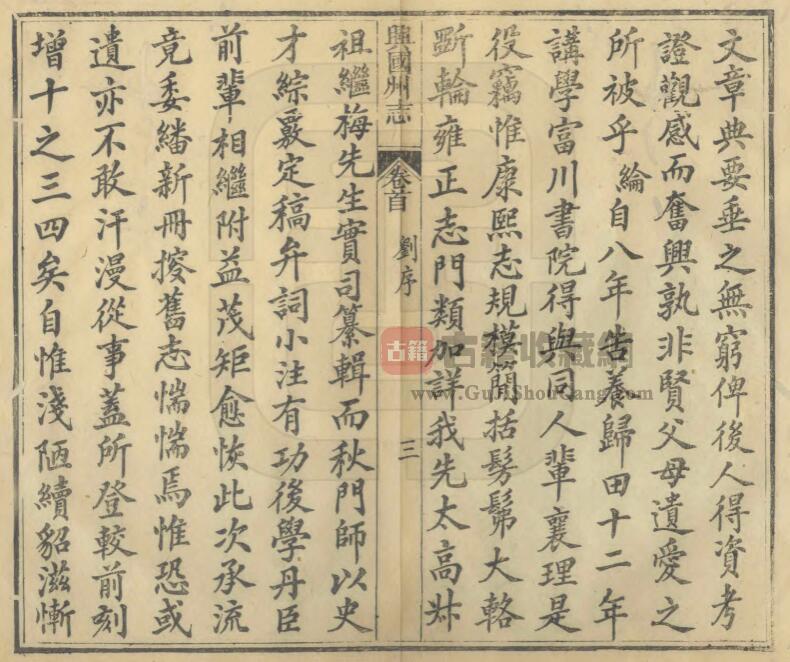 文章典要垂之無窮俾後人得資考
證觀感而奮興孰非賢父母遺愛之
所被乎綸自八年告養歸田十二年
講學富川書院得與同人輩襄理是
役竊惟康熙志規模簡括髣髴大輅
斲輪雍正志門類加詳我先太高叔
興國州志 卷首 劉序 三
祖繼梅先生實司纂輯而秋門師以史
才綜覈定稿弁詞小注有功後學丹臣
前輩相繼附益茂矩愈恢此次承流
竟委繙新冊挍舊志惴惴焉惟恐或
遺亦不敢汗漫從事蓋所登較前刻
增十之三四矣自惟淺陋續貂滋慚
古籍
古籍收藏網
www.GuJiShouCang.com